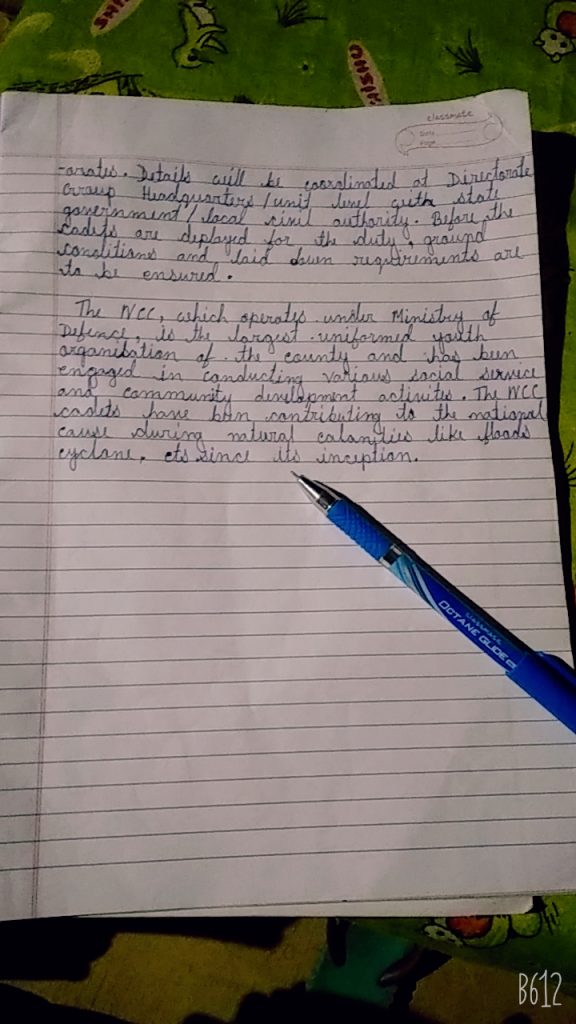 classmate
Date
Page
-orates. Details will be coordinated at Directorate
Group Headquarters/unit level with state
government/local civil authority. Before the
cadets are deployed for the duty, ground
conditions and laid down requirements are
to be ensured.
The NCC, which operates under Ministry of
Defence, is the largest uniformed youth
organisation of the county and has been
engaged in conducting various social service
and community development activites. The NCC
cadets have ben contributing to the national
cause during natural calamities like floods
cyclone, ets since its inception.
classmate
OCTANE GUIDE
B612